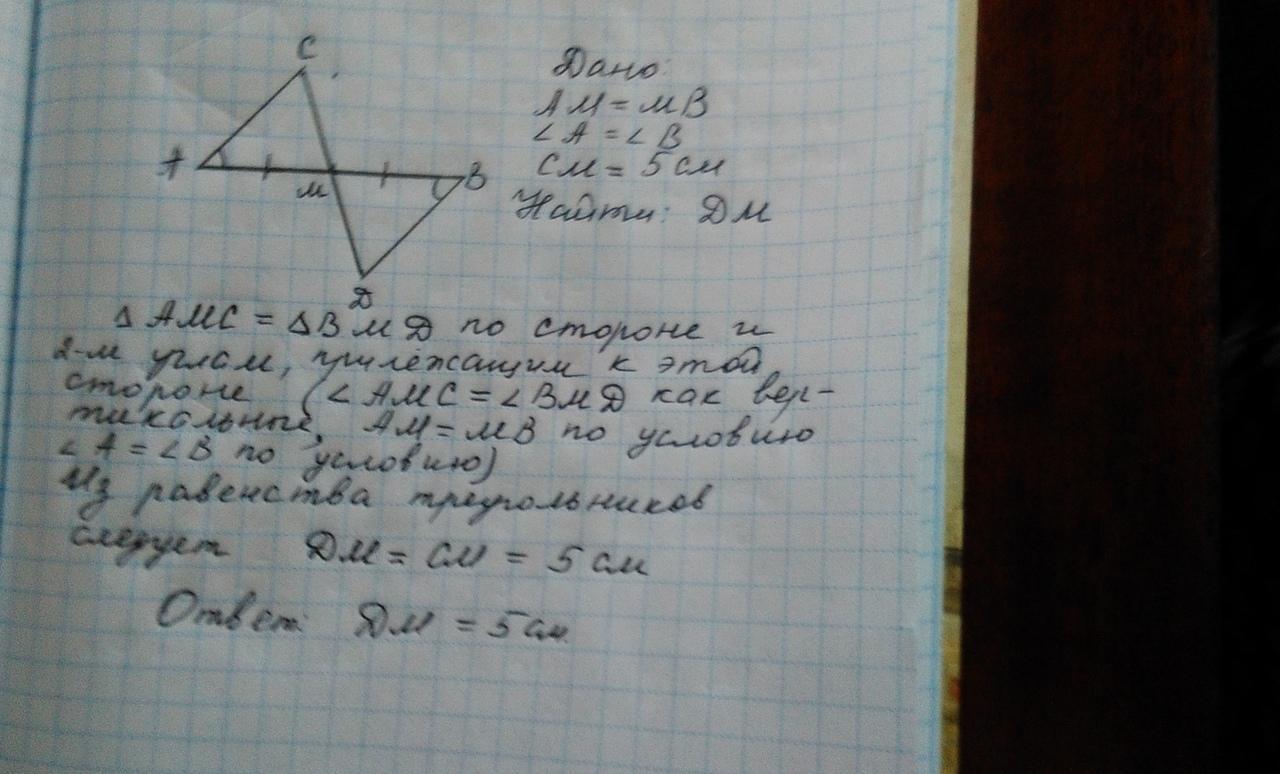 C
A
M
B
D
Дано:
AM = MB
∠A = ∠B
CM = 5 см
Найти: DM
△AMC = △BMD по стороне и
2-м углам, прилежащим к этой
стороне (∠AMC = ∠BMD как вер-
тикальные, AM = MB по условию
∠A = ∠B по условию)
Из равенства треугольников
следует DM = CM = 5 см
Ответ: DM = 5 см.